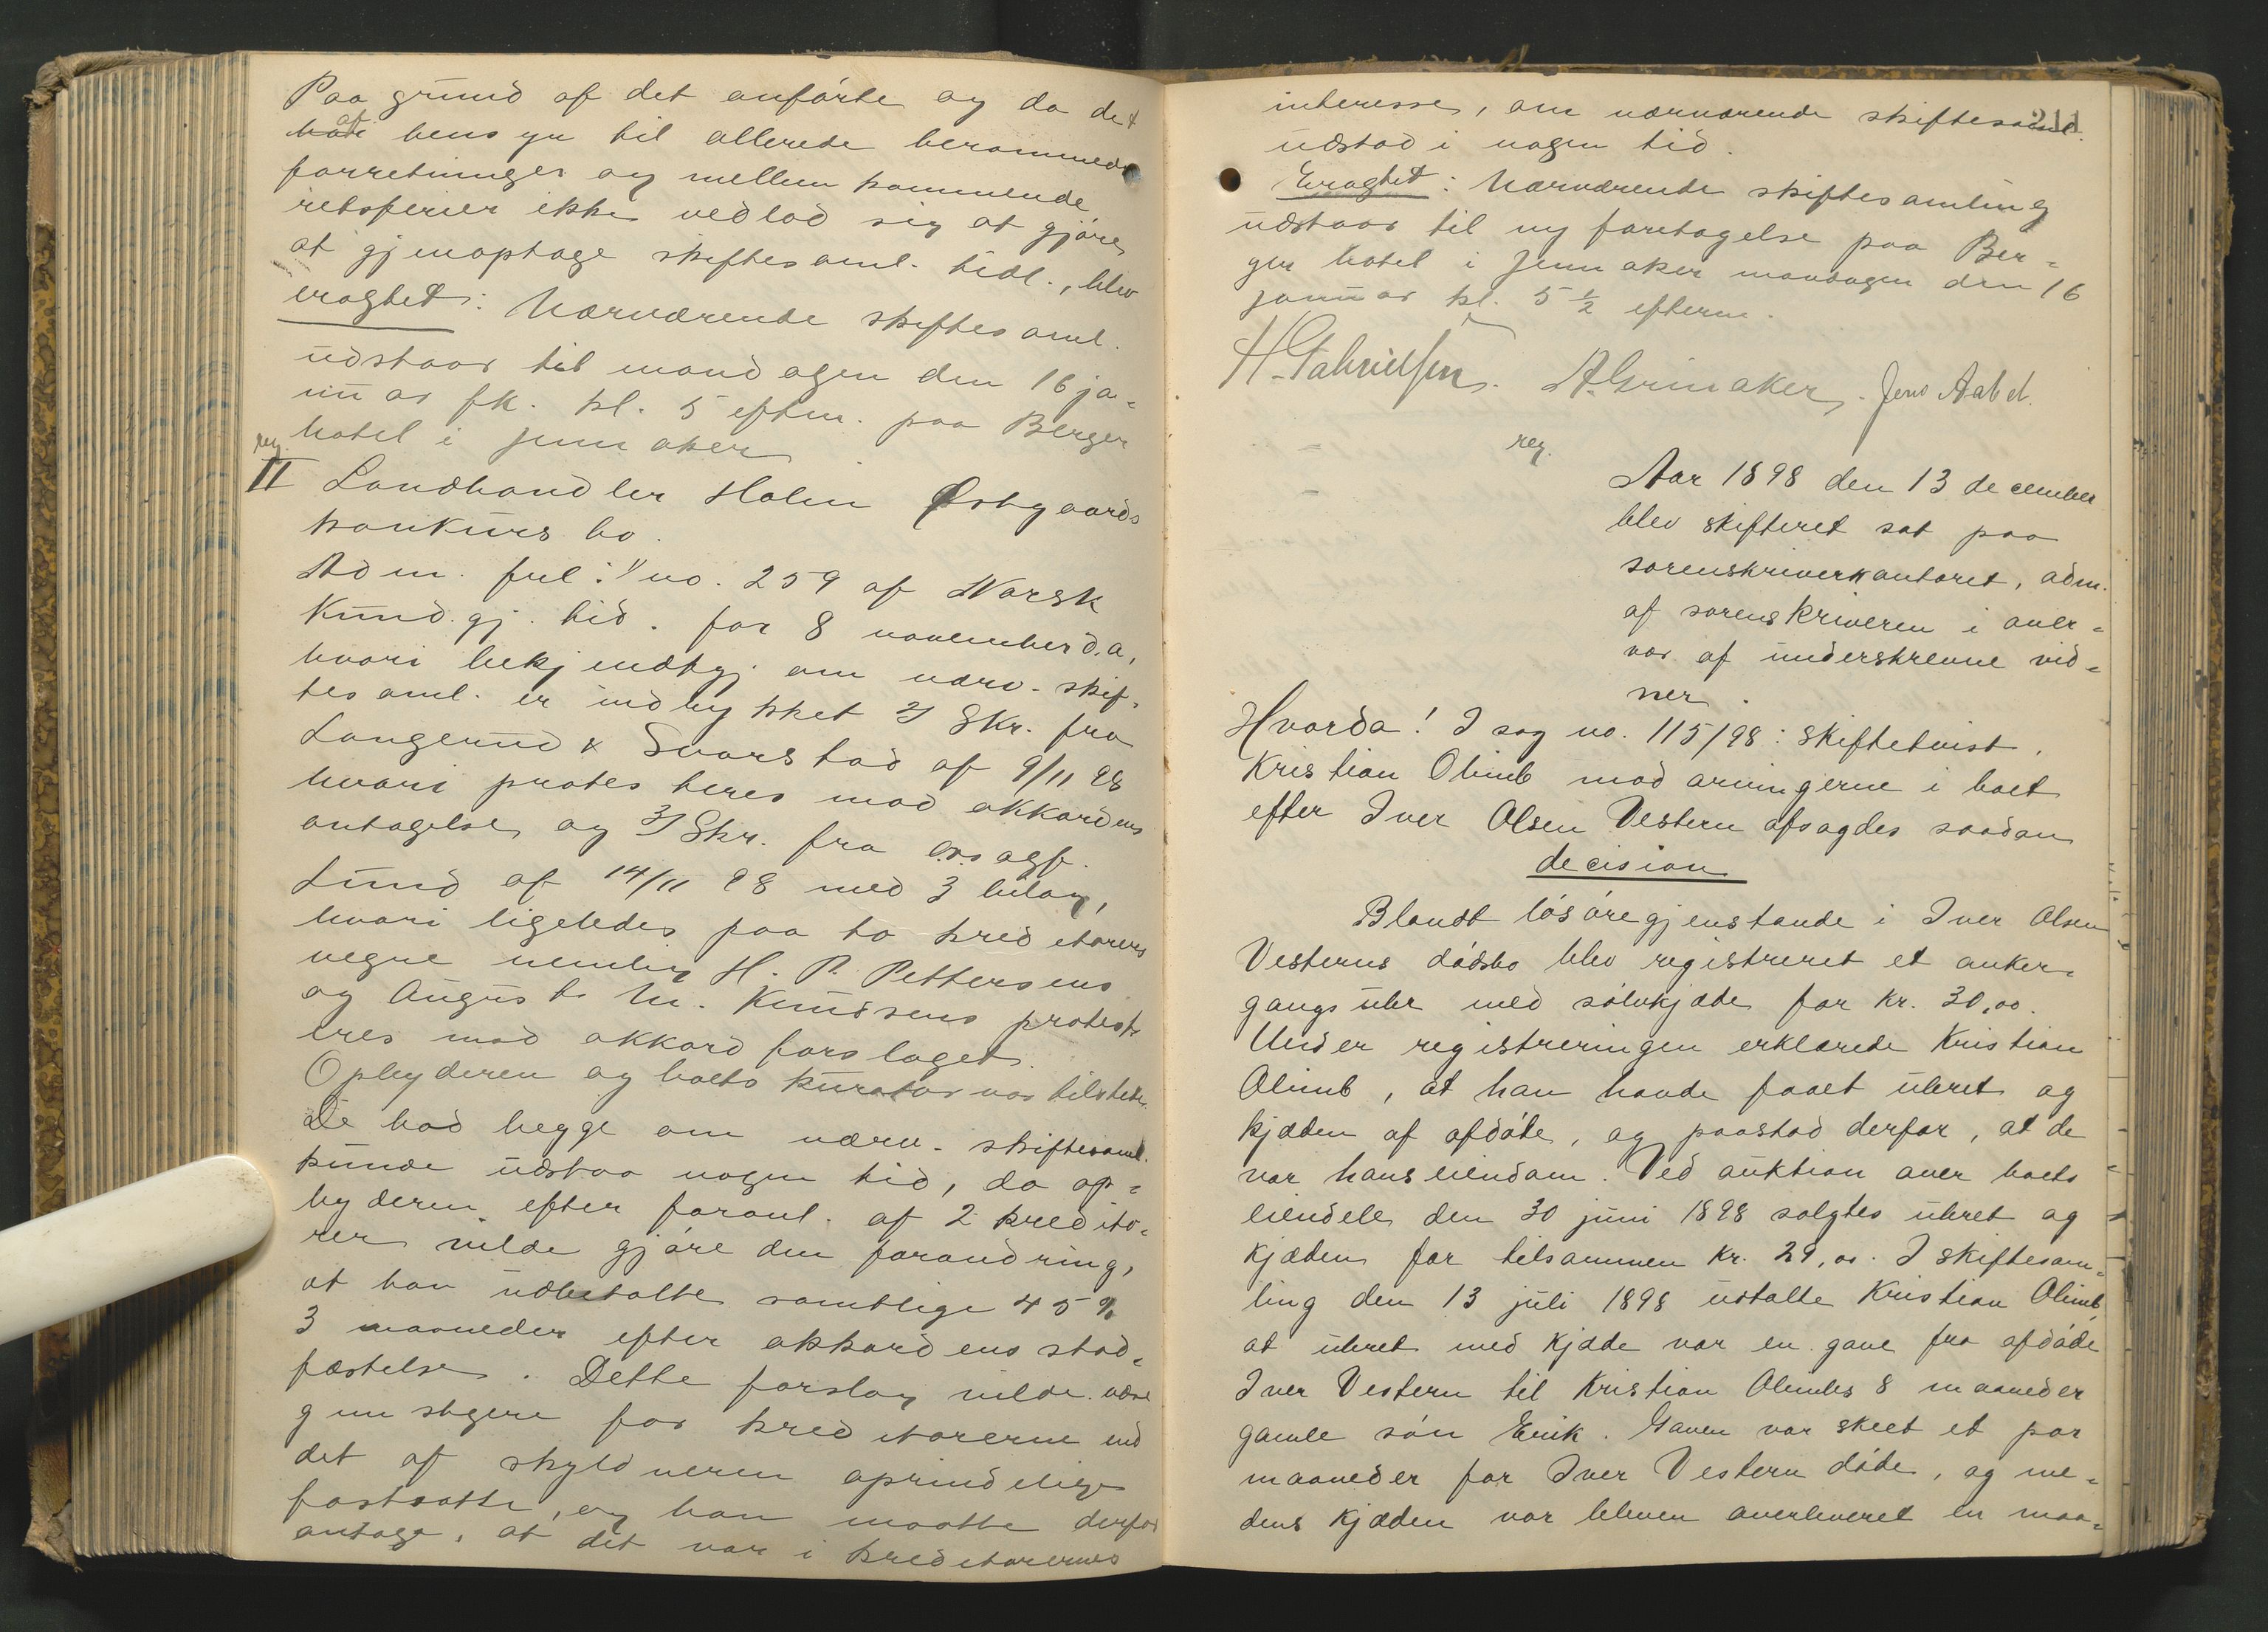 Paa grund af det anførte og da det
af hensyn til allerede berammede
forretninger og mellem kommende
retsferier ikke vedlod sig at gjøre
at gjenoptage skiftesaml. tidl., blev
eragtet: Nærværende skiftesaml.
udstaar til mandagen den 16 ja-
nuar fk. kl. 5 efterm. paa Berger
hotel i Jevnaker
reg.
II Landhandler Halm Østgaards
konkursbo.
Adm. frel: 1/ no. 259 af Norsk
Kund.gj. tid. for 8 november d.a,
hvori bekjendtgj. om nærv. skif-
tesaml. er indrykket 2/ Skr. fra
Langerud & Svarstad af 9/11 98
hvori protesteres mod akkordens
antagelse og 3/ Skr. fra o.r.sagf.
Lund af 14/11 98 med 3 bilag,
hvori ligeledes paa to kreditorers
vegne nemlig H. P. Pettersens
og August M. Knudsens protest-
eres mod akkordforslaget.
Opbyderen og boets kurator var tilstede.
De bad begge om nærv. skiftesaml.
kunde udstaa nogen tid, da op-
byderen efter foranl. af 2 kredito-
rer vilde gjøre den forandring,
at han udbetalte samtlige 45 %
3 maaneder efter akkordens stad-
fæstelse. Dette forslag vilde være
gunstigere for kreditorerne end
det af skyldneren oprindelige
fastsatte, og han maatte derfor
antage, at det var i kreditorernes
211
interesse, om nærværende skiftesaml.
udstod i nogen tid.
Eragtet: Nærværende skiftesamling
udstaar til ny foretagelse paa Ber-
ger hotel i Jevnaker mandagen den 16
januar kl. 5 1/2 efterm.
H. Gabrielsen. A. Grinaker. Jens Aabel.
reg.
Aar 1898 den 13 december
blev skifteret sat paa
sorenskriverkontoret, adm.
af sorenskriveren i over-
vær af underskrevne vid-
ner.
Hvorda! I sag no. 115/98: skiftetvist.
Kristian Olimb mod arvingerne i boet
efter Iver Olsen Vestern afsagdes saadan
decision
Blandt løsøregjenstande i Iver Olsen
Vesterns dødsbo blev registreret et anker-
gangsuhr med sølvkjæde for kr. 30,00.
Under registreringen erklærede Kristian
Olimb, at han havde faaet uhret og
kjæden af afdøde, og paastod derfor, at de
var hans eiendom. Ved auktion over boets
eiendele den 30 juni 1898 solgtes uhret og
kjæden for tilsammen kr. 29,00. I skiftesam-
ling den 13 juli 1898 udtalte Kristian Olimb,
at uhret med kjæde var en gave fra afdøde
Iver Vestern til Kristian Olimbs 8 maaneder
gamle søn Erik. Gaven var skeet et par
maaneder før Iver Vestern døde, og me-
dens kjæden var bleven overleveret en maa-